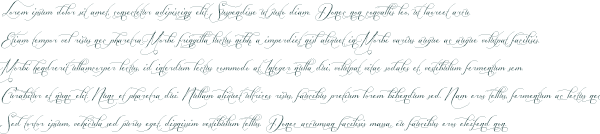 Lorem ipsum dolor sit amet, consectetur adipiscing elit. Suspendisse in justo diam. Donec quis convallis leo, ut laoreet arcu.
Etiam tempor vel risus nec pharetra. Morbi fringilla luctus nibh, a imperdiet nisl aliquet in. Morbi varius augue ac augue volutpat facilisis.
Morbi hendrerit ullamcorper lectus, id interdum lectus commodo at. Integer nulla dui, volutpat vitae sodales et, vestibulum fermentum sem.
Curabitur et quam elit. Nunc et pharetra dui. Nullam aliquet ultrices risus, faucibus pretium lorem bibendum sed. Nam eros tellus, fermentum ac lectus nec
Sed tortor ipsum, vehicula sed justo eget, dignissim vestibulum tellus. Donec accumsan facilisis massa, eu faucibus eros eleifend quis.